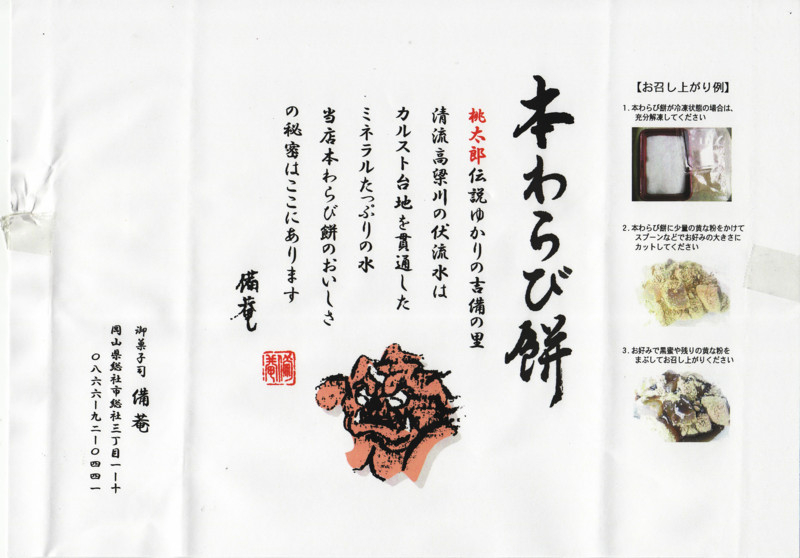 本わらび餅
桃太郎伝説ゆかりの吉備の里
清流高梁川の伏流水は
カルスト台地を貫通した
ミネラルたっぷりの水
当店本わらび餅のおいしさ
の秘密はここにあります
備菴
備菴
御菓子司 備菴
岡山県総社市総社三丁目一ー十
〇八六六ー九二ー〇四四一
【お召し上がり例】
1. 本わらび餅が冷凍状態の場合は、
充分解凍してください
2. 本わらび餅に少量の黄な粉をかけて
スプーンなどでお好みの大きさに
カットしてください
3. お好みで黒蜜や残りの黄な粉を
まぶしてお召し上がりください